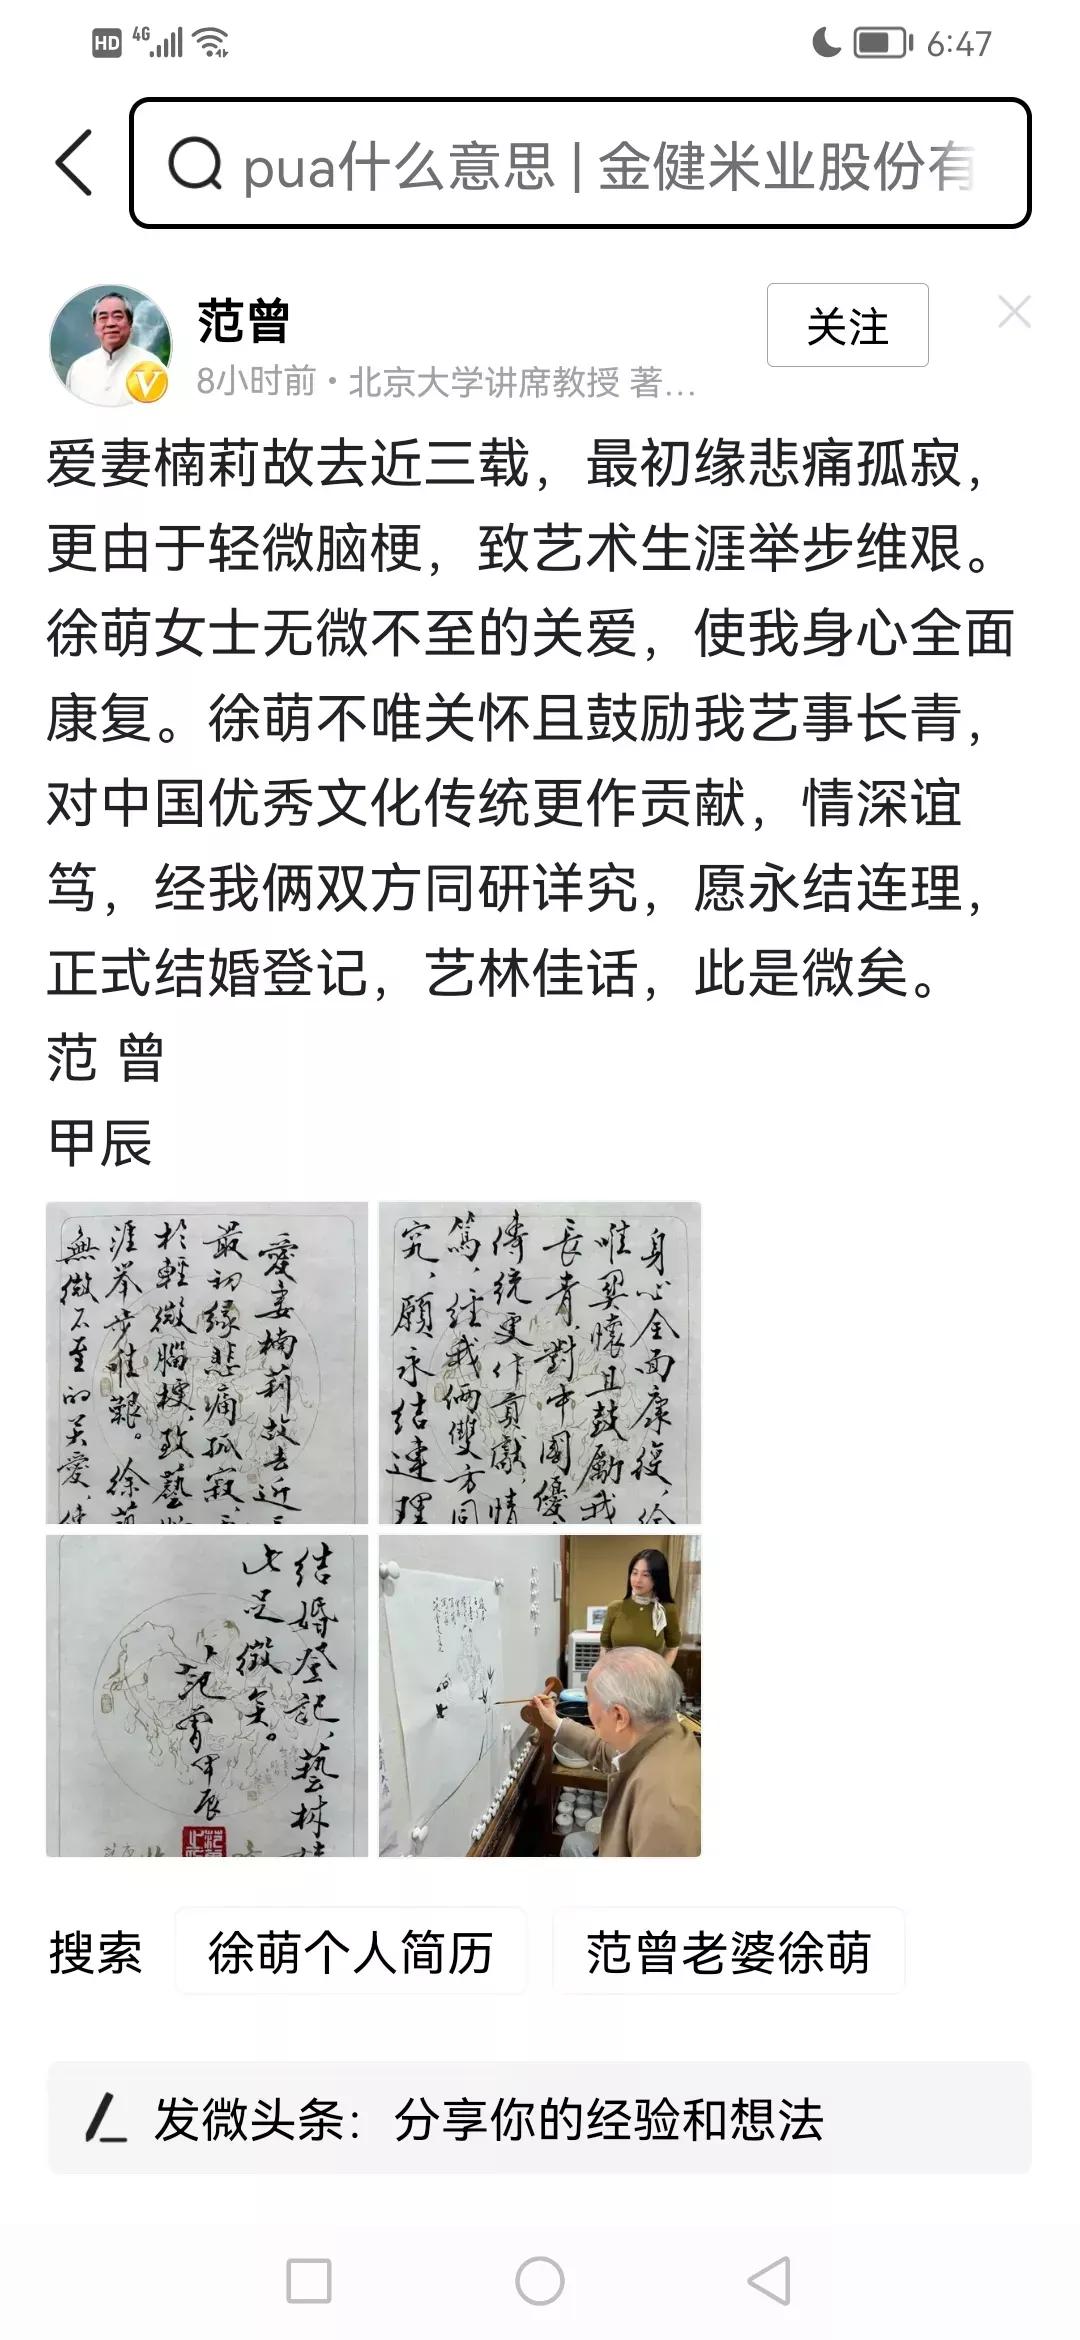 HD 4G 6:47
pua什么意思 | 金健米业股份有
范曾
关注
8小时前・北京大学讲席教授 著...
爱妻楠莉故去近三载，最初缘悲痛孤寂，
更由于轻微脑梗，致艺术生涯举步维艰。
徐萌女士无微不至的关爱，使我身心全面
康复。徐萌不唯关怀且鼓励我艺事长青，
对中国优秀文化传统更作贡献，情深谊
笃，经我俩双方同研详究，愿永结连理，
正式结婚登记，艺林佳话，此是微矣。
范 曾
甲辰
愛妻楠莉故去近三
最初緣悲痛孤寂，
於輕微腦梗，致藝
涯举步维艱。徐萌
無微不至的关愛，使
身心全面康復，徐
唯関懷且鼓勵我
長青，對中國優
傳統更作貢獻，情
篤，经我倆雙方同
究，願永结連理
结婚登記，藝林
此是微矣。
范曾甲辰
搜索 徐萌个人简历 范曾老婆徐萌
发微头条：分享你的经验和想法